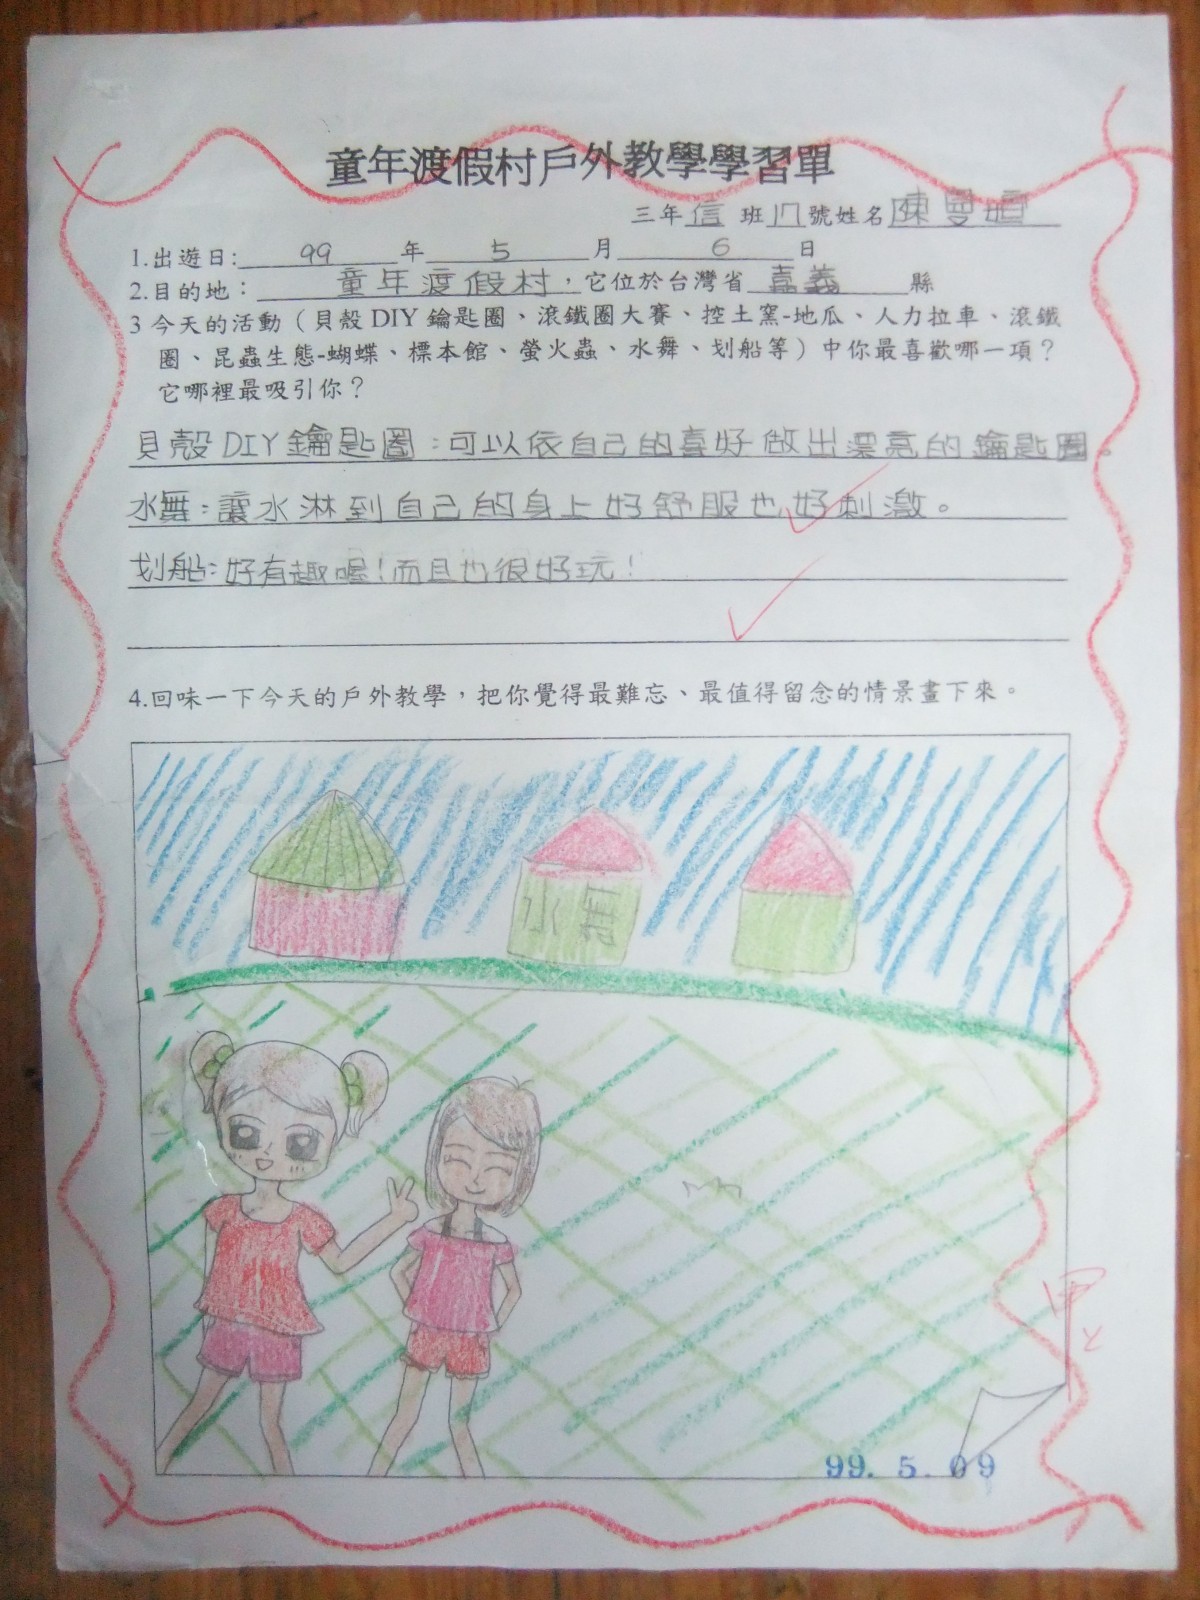 童年渡假村戶外教學學習單
三年信班17號姓名陳曼暄
1.出遊日:99年5月6日
2.目的地：童年渡假村，它位於台灣省嘉義縣
3 今天的活動（貝殼 DIY 鑰匙圈、滾鐵圈大賽、控土窯-地瓜、人力拉車、滾鐵
圈、昆蟲生態-蝴蝶、標本館、螢火蟲、水舞、划船等）中你最喜歡哪一項？
它哪裡最吸引你？
貝殼DIY鑰匙圈：可以依自己的喜好做出漂亮的鑰匙圈。
水舞：讓水淋到自己的身上好舒服也好刺激。
划船：好有趣喔！而且也很好玩！
4.回味一下今天的戶外教學，把你覺得最難忘、最值得留念的情景畫下來。
水舞
甲
99. 5. 09